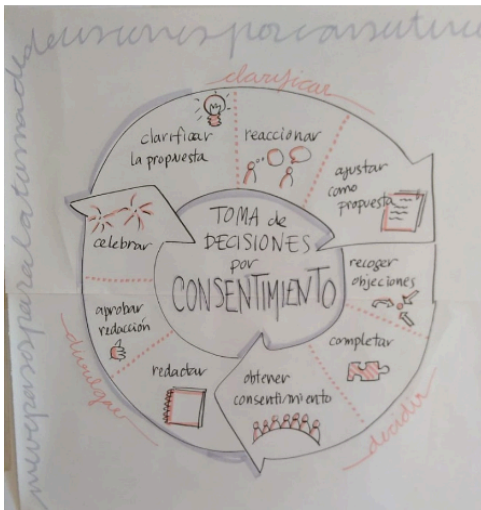 nueve pasos para la toma de
decisiones por consentimie
clarificar
clarificar
la propuesta
reaccionar
ajustar
como
propuesta
recoger
objeciones
completar
decidir
obtener
consentimiento
redactar
aprobar
redacción
divulgar
celebrar
TOMA de
DECISIONES
por
CONSENTIMIENTO